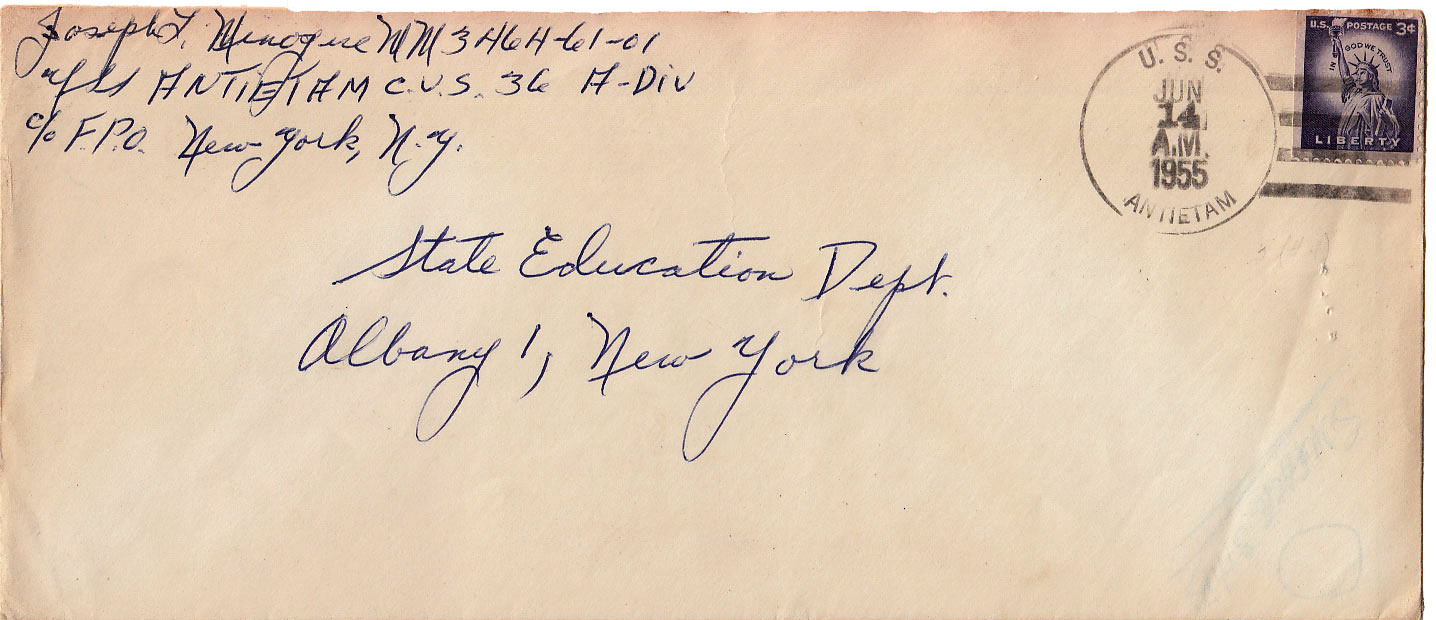 Joseph T. Minogue MM3 464-61-01
USS ANTIETAM C.V.S. 36 A-Div
c/o F.P.O. New York, N.Y.
U. S. S.
JUN
14
A.M.
1955
ANTIETAM
U.S. POSTAGE 3¢
IN GOD WE TRUST
LIBERTY
State Education Dept.
Albany 1, New York